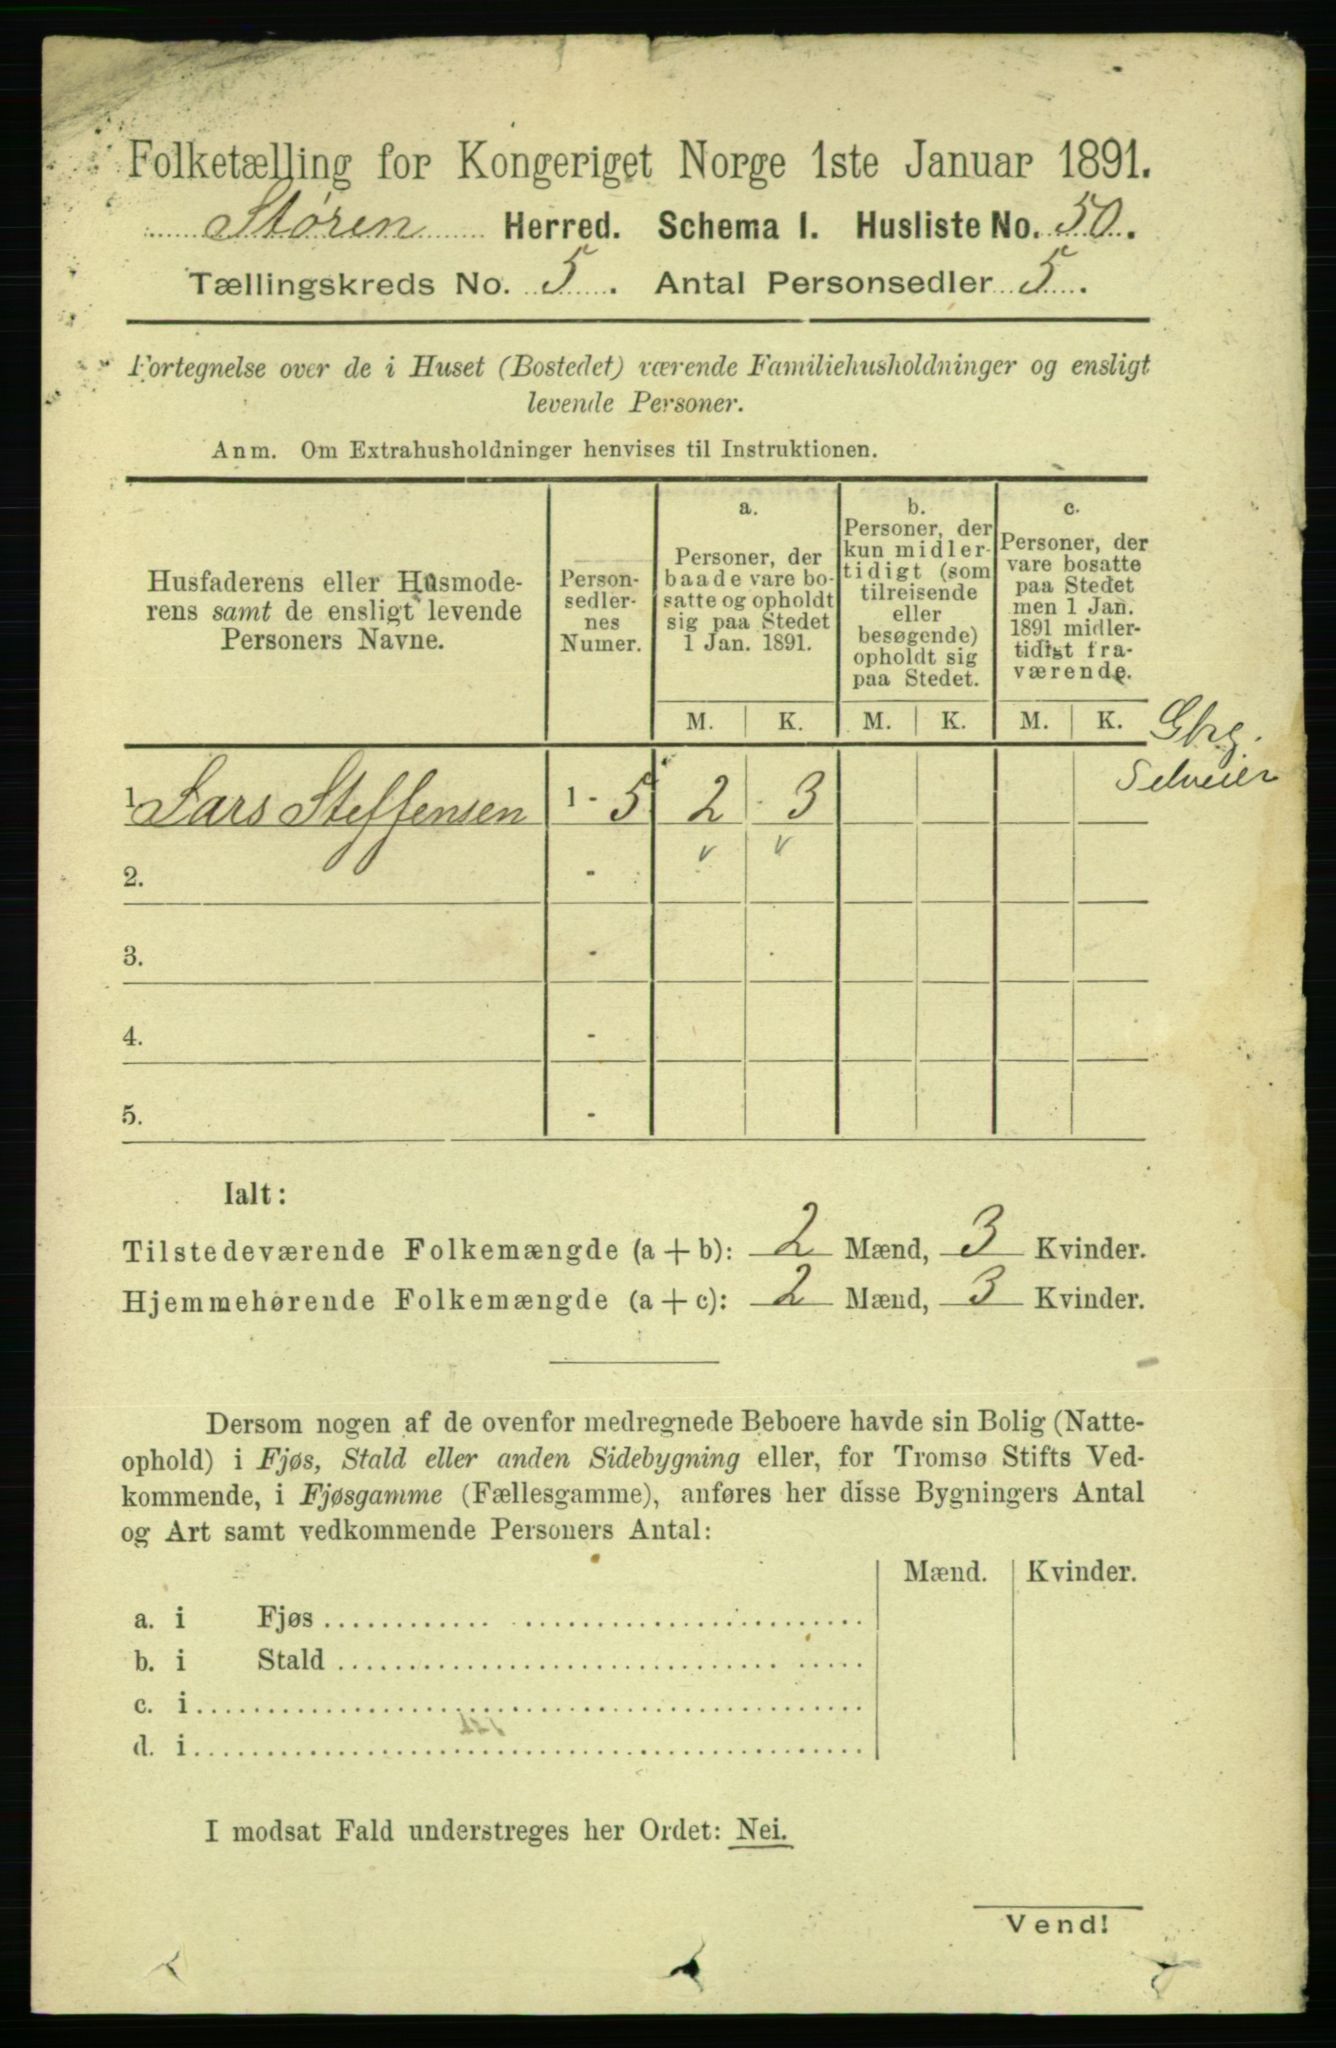 Folketælling for Kongeriget Norge 1ste Januar 1891.
Støren Herred. Schema I. Husliste No. 50.
Tællingskreds No. 5. Antal Personsedler 5.
Fortegnelse over de i Huset (Bostedet) værende Familiehusholdninger og ensligt
levende Personer.
Anm. Om Extrahusholdninger henvises til Instruktionen.
Husfaderens eller Husmode-
rens samt de ensligt levende
Personers Navne.
Person-
sedler-
nes
Numer.
a.
Personer, der
baade vare bo-
satte og opholdt
sig paa Stedet
1 Jan. 1891.
b.
Personer, der
kun midler-
tidigt (som
tilreisende
eller
besøgende)
opholdt sig
paa Stedet.
c.
Personer, der
vare bosatte
paa Stedet
men 1 Jan.
1891 midler-
tidigt fra-
værende.
M. K. M. K. M. K.
Selveier
1. Lars Steffensen 1 - 5 2 3
v v
2. -
3. -
4. -
5. -
Ialt:
Tilstedeværende Folkemængde (a + b): 2 Mænd, 3 Kvinder.
Hjemmehørende Folkemængde (a + c): 2 Mænd, 3 Kvinder.
Dersom nogen af de ovenfor medregnede Beboere havde sin Bolig (Natte-
ophold) i Fjøs, Stald eller anden Sidebygning eller, for Tromsø Stifts Ved-
kommende, i Fjøsgamme (Fællesgamme), anføres her disse Bygningers Antal
og Art samt vedkommende Personers Antal:
Mænd. Kvinder.
a. i Fjøs
b. i Stald
c. i
d. i
I modsat Fald understreges her Ordet: Nei.
Vend!